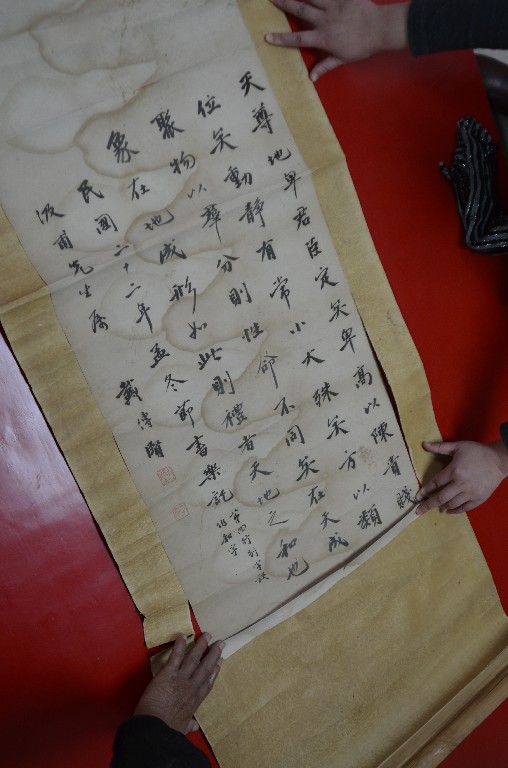 天尊地卑君臣定矣卑高以陳貴賤
位矣動靜有常小大殊矣方以類
聚物以羣分則性命不同矣在天成
象在地成形如此則禮者天地之和也
民國二十二年孟冬節書樂記
第四行別字誤
作和字
汲甫先生屬
戴傳賢